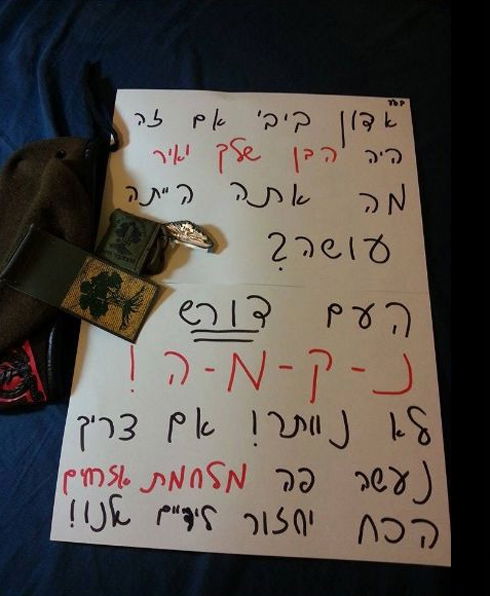 בס"ד
אדון ביבי אם זה
היה הבן שלך יאיר
מה אתה היית
עושה?
העם דורש
נ-ק-מ-ה!
לא נוותר! אם צריך
נעשה פה מלחמת אזרחים
הכח יחזור לידיים אלנו!